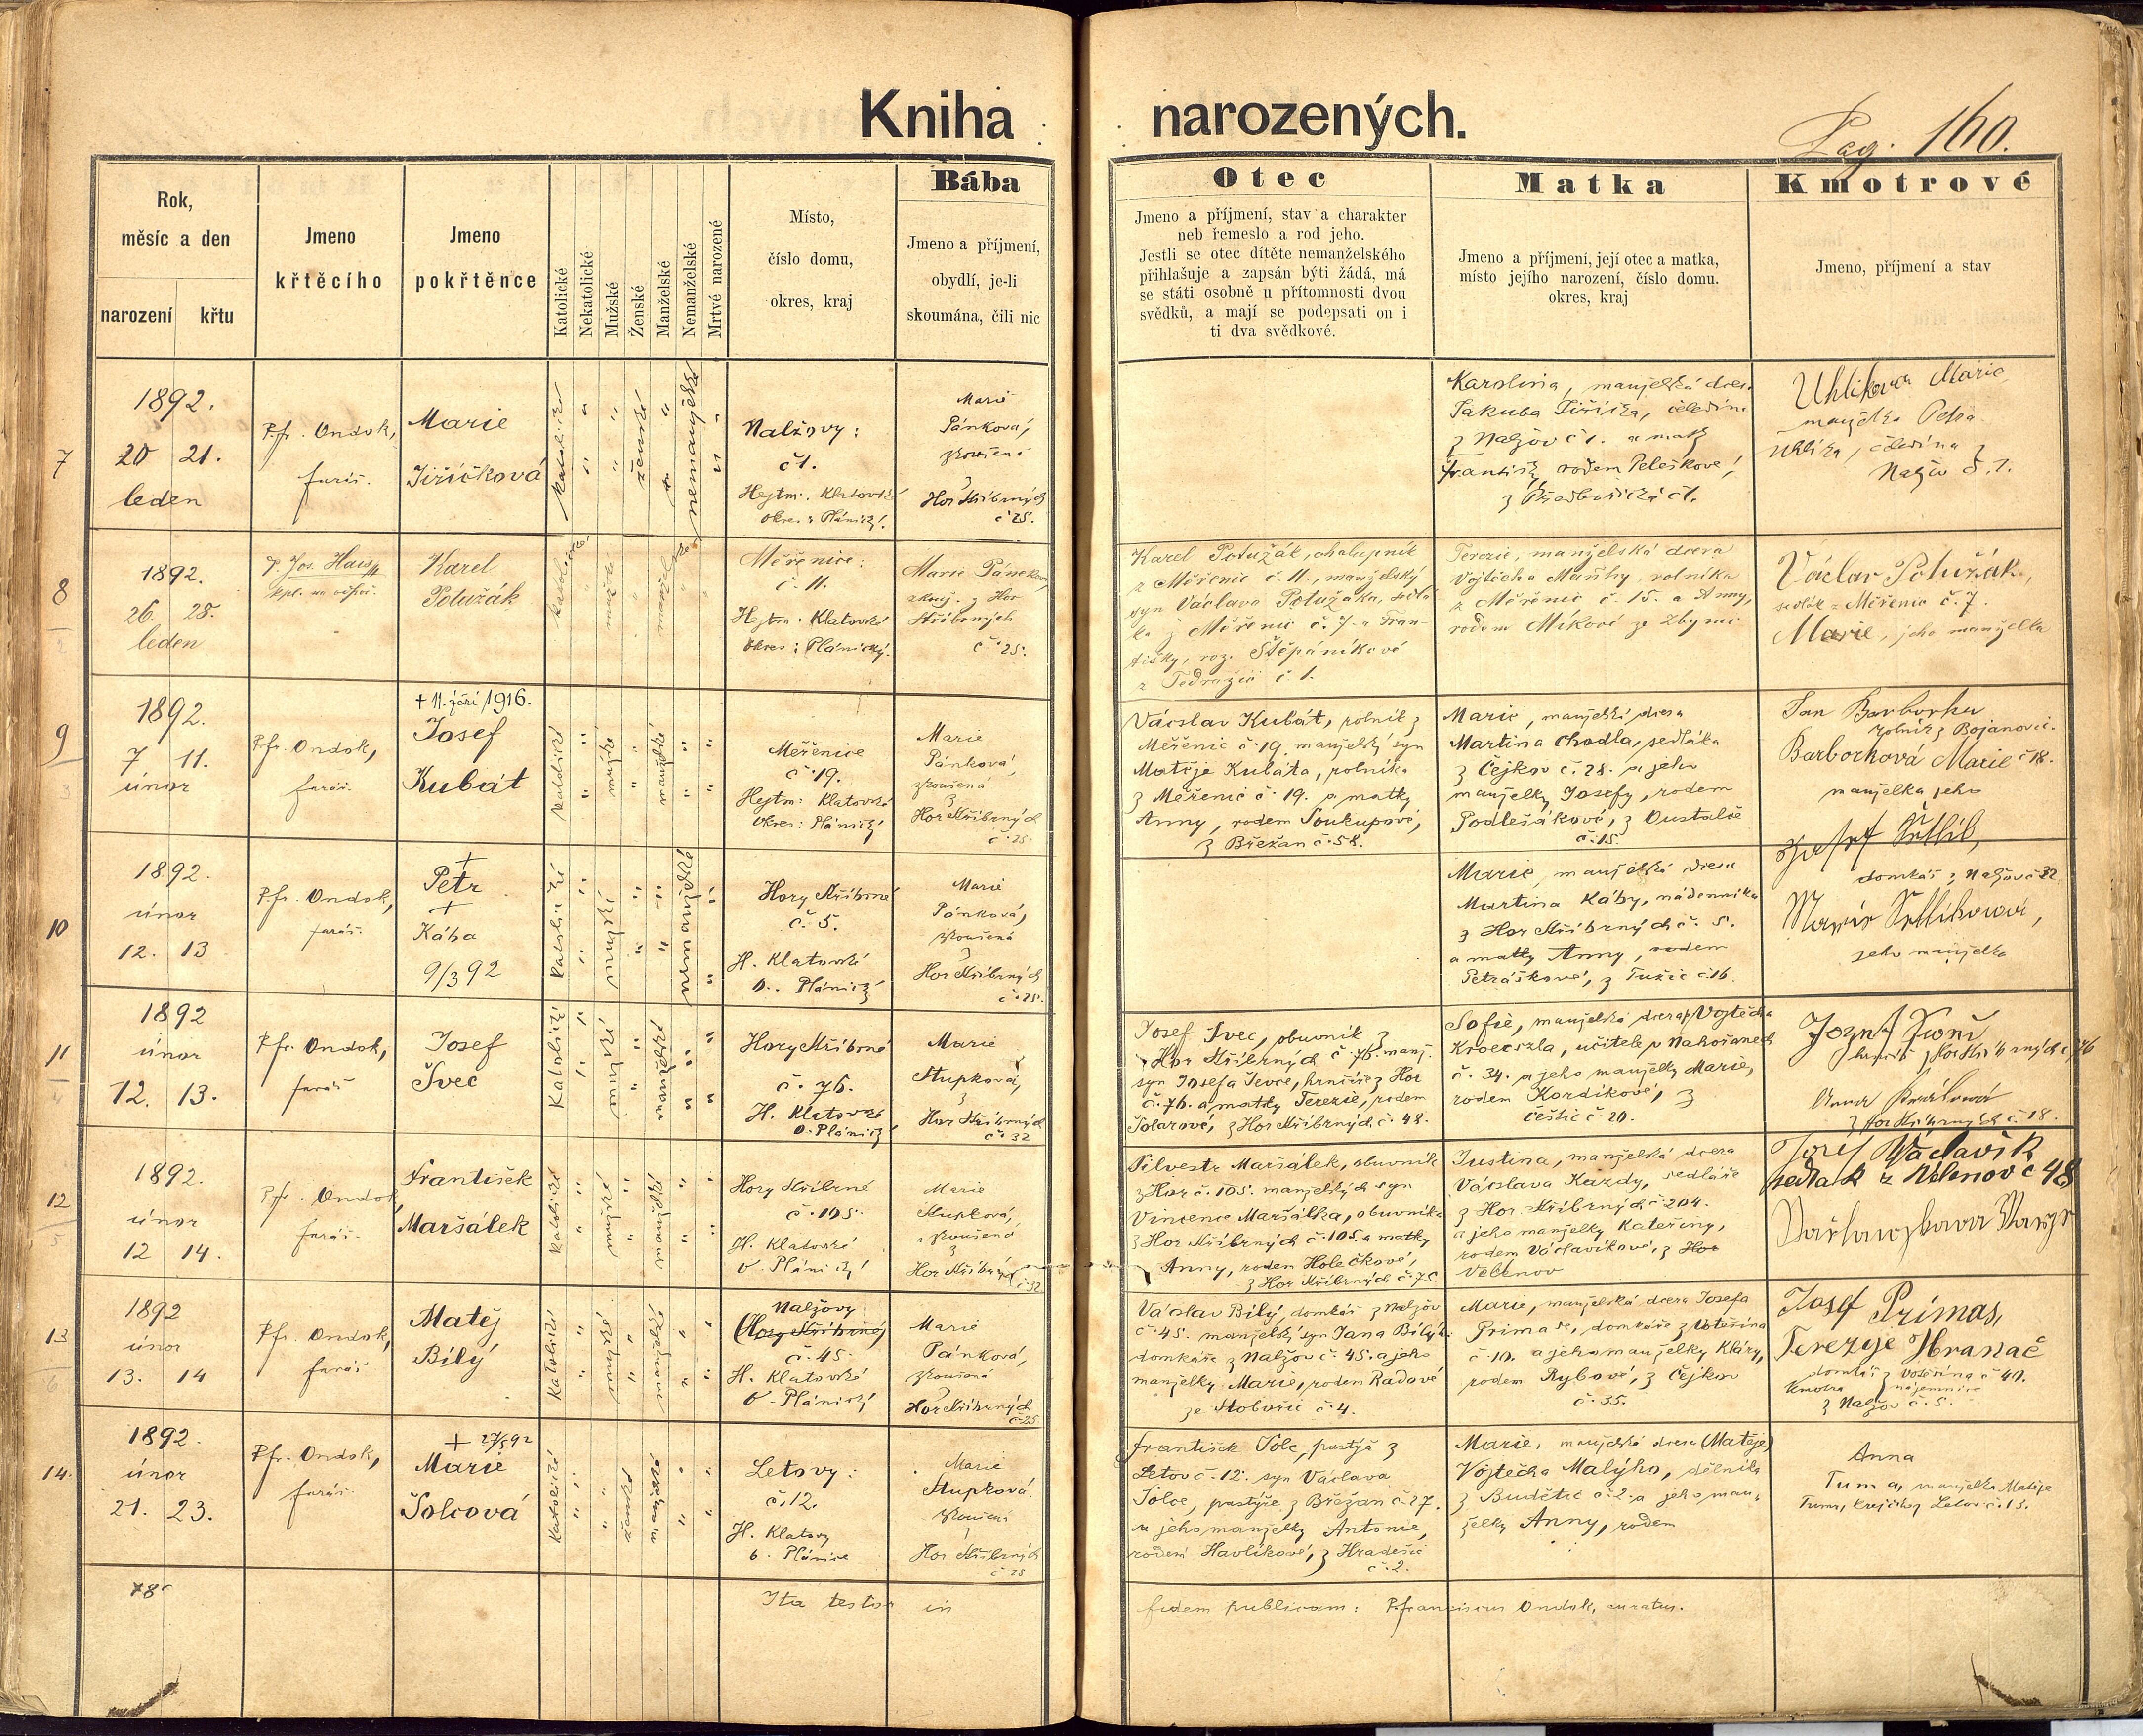 Kniha narozených.
Pag. 160.
Rok,
měsíc a den
narození křtu
Jmeno
křtěcího
Jmeno
pokřtěnce
Katolické
Nekatolické
Mužské
Ženské
Manželské
Nemanželské
Mrtvé narozené
Místo,
číslo domu,
okres, kraj
Bába
Jmeno a příjmení,
obydlí, je-li
skoumána, čili nic
Otec
Jmeno a příjmení, stav a charakter
neb řemeslo a rod jeho.
Jestli se otec dítěte nemanželského
přihlašuje a zapsán býti žádá, má
se státi osobně u přítomnosti dvou
svědků, a mají se podepsati on i
ti dva svědkové.
Matka
Jmeno a příjmení, její otec a matka,
místo jejího narození, číslo domu.
okres, kraj
Kmotrové
Jmeno, příjmení a stav
7
1892.
20 21.
leden
P. fr. Ondok,
farář.
Marie
Jiřičková
katolické
ženské
nemanželské
Nalžovy:
č 1.
Hejtm. Klatovské
Okres: Plánický.
Marie
Pánková,
zkoušená
z
Hor Stříbrných
č 25.
Karolina, manželská dcera
Jakuba Jiřička, čeledína
z Nalžov č 1. a matky
Františky, rodem Peleškové,
č 1.
Uhlíkova Marie,
manželka Petra
Uhlíka, čeledína z
Nalžov č. 1.
8
1892.
26. 28.
leden
P. Jos. Hais
Karel
Polužák
Měřenice:
č. 11.
Hejtm. Klatovské
Okres: Plánický.
Marie Pánková,
zkouš. z Hor
Stříbrných
č. 25.
Karel Polužák, chalupník
z Měřenic č. 11., manželský
syn Václava Polužáka, sedlá-
ka z Měřenic č. 7. a Fran-
tišky, roz. Štěpánkové
z Tedražic č. 1.
Terezie, manželská dcera
Vojtěcha rolníka
z Měřenic č. 15. a Anny,
rodem Míkové ze Zbynic
Václav Polužák,
sedlák z Měřenic č. 7.
Marie, jeho manželka
9
1892.
7 11.
únor
P. fr. Ondok,
farář.
+ 11. září 1916.
Josef
Kubát
katolické
mužské
manželské
Měřenice
č. 19.
Hejtm: Klatovské
Okres: Plánický
Marie
Pánková,
zkoušená
z
Hor Stříbrných
č. 25
Václav Kubát, rolník z
Měřenic č. 19. manželský syn
Matěje Kubáta, rolníka
z Měřenic č. 19. a matky
Anny, rodem Soukupové,
z Břežan č. 58.
Marie, manželská dcera
Martina Chodla, sedláka
z Čejkov č. 28. a jeho
manželky Josefy, rodem
Podlešákové, z
č. 15.
Jan Barborka
rolník z Bojanovic.
Barborková Marie č 18.
manželka jeho
10
1892.
únor
12. 13
P. fr. Ondok,
farář.
+
Petr
+
Kába
9/3 92
katolické
mužské
nemanželské
Hory Stříbrné
č. 5.
H. Klatovské
O. Plánický
Marie
Pánková,
zkoušená
z
Hor Stříbrných
č. 25.
Marie, manželská dcera
Martina Káby, nádenníka
z Hor Stříbrných č. 5.
a matky Anny, rodem
Petráškové, z Tužic č 16.
Josef
domkář z Nalžov č 32
Marie
jeho manželka
11
1892
únor
12. 13.
P. fr. Ondok,
farář
Josef
Švec
Katolické
mužské
manželské
Hory Stříbrné
č. 76.
H. Klatovské
O. Plánický
Marie
Stupková,
z
Hor Stříbrných
č. 32
Josef Švec, obuvník z
Hor Stříbrných č. 76. manž.
syn Josefa Ševce, hrnčíře z Hor
č. 76. a matky Terezie, rodem
Šolarové, z Hor Stříbrných č. 48.
Sofie, manželská dcera Vojtěcha
učitele v Nahořanech
č. 34. a jeho manželky Marie,
rodem Kordíkové, z
Čestic č. 20.
Josef
Hor Stříbrných č 76
Anna
z Hor Stříbrných č 18.
12
1892.
únor
12 14.
P. fr. Ondok
farář.
František
Maršálek
katolické
mužské
manželské
Hory Stříbrné
č. 105.
H. Klatovské
O. Plánický
Marie
Stupková,
zkoušená
z
Hor Stříbrných
č. 32
Silvestr Maršálek, obuvník
z Hor č. 105. manželský syn
Vincence Maršálka, obuvníka
z Hor Stříbrných č. 105. a matky
Anny, rodem Holečkové,
z Hor Stříbrných č. 75.
Justina, manželská dcera
Václava Kazdy, sedláře
z Hor Stříbrných č. 204.
a jeho manželky Kateřiny,
rodem Václavíkové, z Hor
Velenov
Josef Václavík
sedlak z Velenov č 48
13
1892
únor
13. 14
P. fr. Ondok,
farář
Matěj
Bílý
Katolické
mužské
manželské
Nalžovy
(Hory Stříbrné)
č. 45.
H. Klatovské
O. Plánický
Marie
Pánková,
zkoušená
z
Hor Stříbrných
č. 25
Václav Bílý, domkář z Nalžov
č. 45. manželský syn Jana Bílý
domkáře z Nalžov č. 45. a jeho
manželky Marie, rodem Radové
ze Stobořic č. 4.
Marie, manželská dcera Josefa
Primase, domkáře z Votěšína
č. 10. a jeho manželky Kláry,
rodem Rybové, z Čejkov
č. 35.
Josef Primas,
Terezye Hranač
domkář z Votěšína č 40.
kmotra nájemnice
z Nalžov č. 5.
14.
1892.
únor
21. 23.
P. fr. Ondok,
farář.
+ 27/5 92
Marie
Šolcová
Katolické
ženské
manželské
Letovy:
č. 12.
H. Klatovy
O. Plánice
Marie
Stupková
zkoušená
z
Hor Stříbrných
František Šolc, pastýř z
Letov č. 12. syn Václava
Šolce, pastýře z Břežan č. 27.
a jeho manželky Antonie,
rodem Havlíkové, z Hradešic
č. 2.
Marie, manželská dcera (Matěje)
Vojtěcha Malýho, dělníka
z Budětic č. 2. a jeho man-
želky Anny, rodem
Anna
Tuma, manželka Matěje
Tumy, krejčího z Letov č. 13.
Ita testor in fidem publicam: P. Franciscus Ondok, curatus.